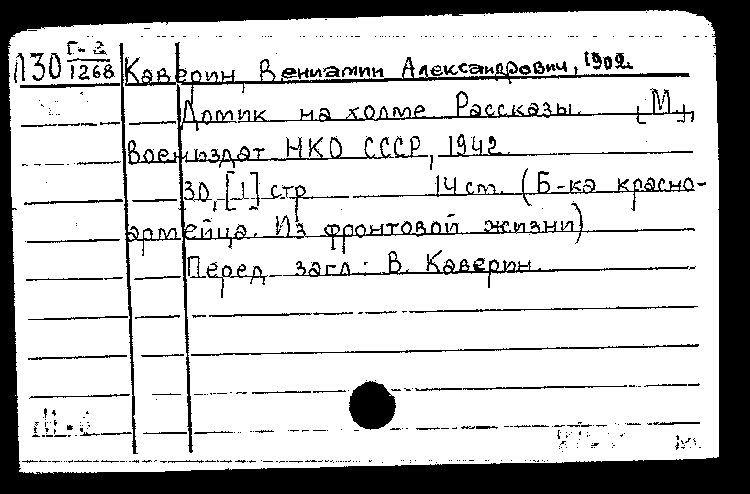 Л30 Г-2/1268 Каверин, Вениамин Александрович, 1902.
Домик на холме Рассказы. [М.],
Воениздат НКО СССР, 1942.
30, [1] стр 14 см. (Б-ка красно-
армейца. Из фронтовой жизни)
Перед загл: В. Каверин.